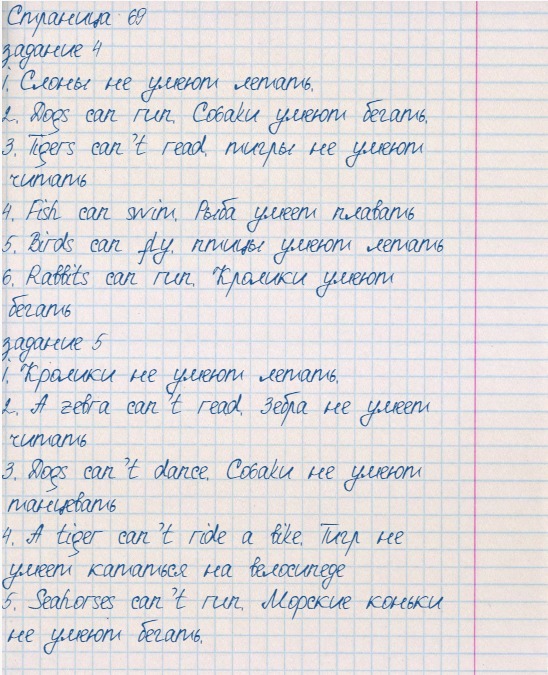 Страница 69
задание 4
1. Слоны не умеют летать.
2. Dogs can run. Собаки умеют бегать.
3. Tigers can't read. тигры не умеют
читать
4. Fish can swim. Рыба умеет плавать
5. Birds can fly. птицы умеют летать
6. Rabbits can run. Кролики умеют
бегать
задание 5
1. Кролики не умеют летать.
2. A zebra can't read. Зебра не умеет
читать
3. Dogs can't dance. Собаки не умеют
танцевать
4. A tiger can't ride a bike. Тигр не
умеет кататься на велосипеде
5. Seahorses can't run. Морские коньки
не умеют бегать.